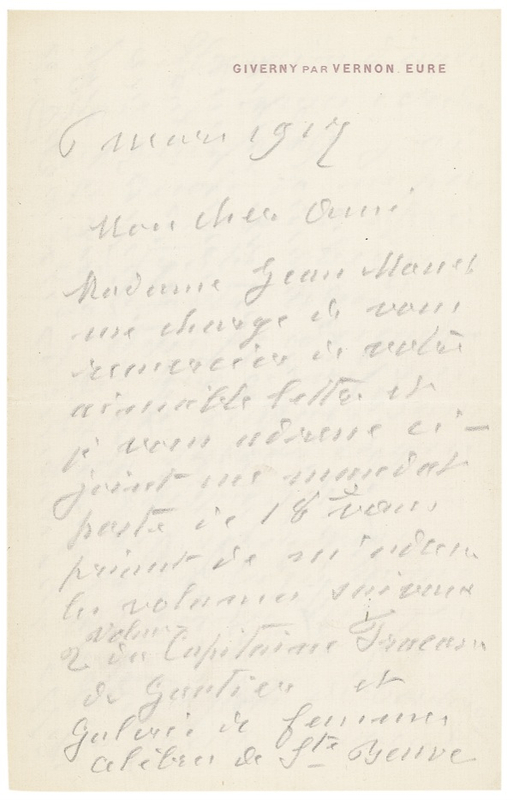 GIVERNY PAR VERNON. EURE
6 mars 1917
Mon cher Ami
Madame Jean Monet
me charge de vous
remercier de votre
aimable lettre et
je vous adresse ci-
joint un mandat
poste de 18 f vous
priant de m'adres.
les volumes suivants
volumes
2 du Capitaine Fracasse
de Gautier et
Galerie de femmes
célèbres de Ste Beuve